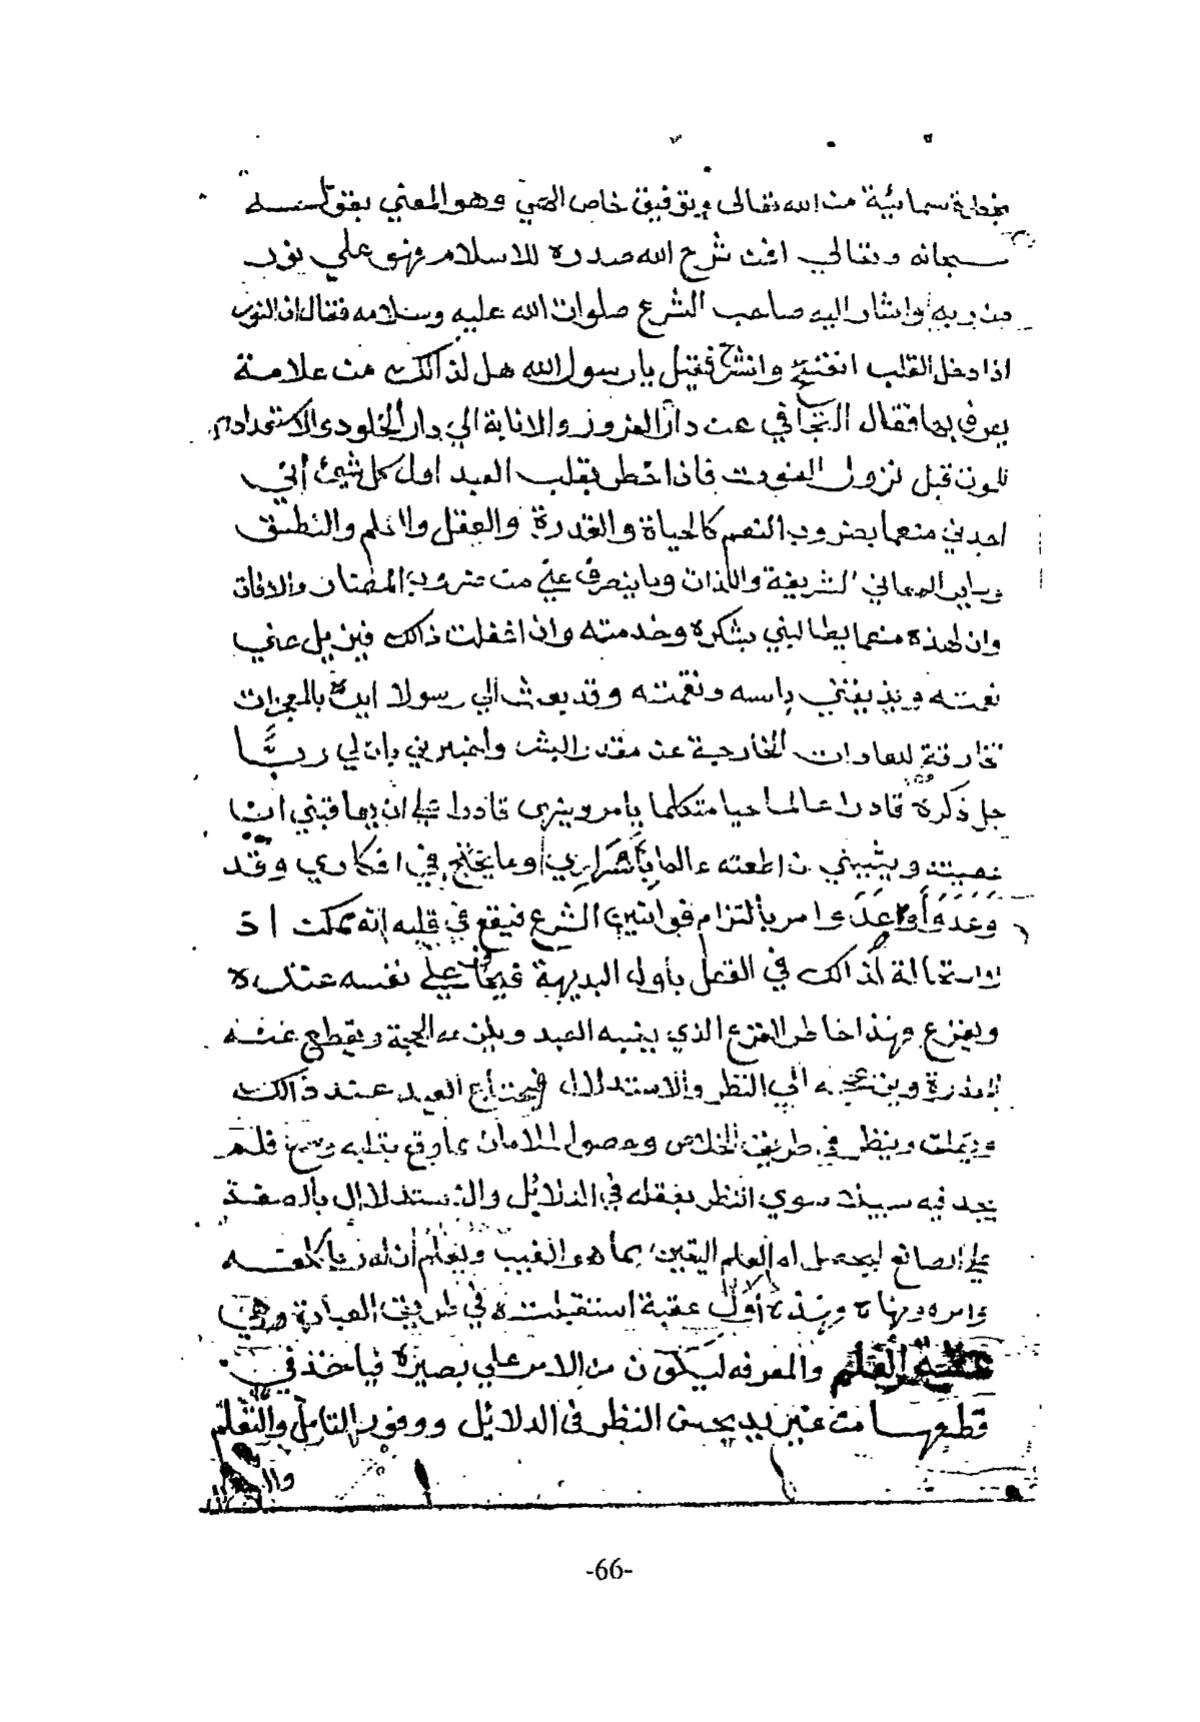 بخطرة سمائية من الله تعالى وتوفيق خاص الهي وهو المعني بقوله
سبحانه وتعالي افمن شرح الله صدره للاسلام فهو علي نور
من ربه واشار اليه صاحب الشرع صلوات الله عليه وسلامه فقال ان النور
اذا دخل القلب انفتح وانشرح فقيل يا رسول الله هل لذالك من علامة
يعرف بها فقال التجافي عن دار الغرور والانابة الي دار الخلود والاستعداد
للموت قبل نزول الموت فاذا خطر بقلب العبد اول كل شيئ أني
اجدني منعما بضروب النعم كالحياة والقدرة والعقل والنطق
وساير المعاني الشريفة واللذات وما ينصرف عني من ضروب المضار والافات
وان لهذه منعما يطالبني بشكره وخدمته وان اغفلت ذالك فيزيل عني
نعمته ويذيقني باسه ونقمته وقد بعث الي رسولا ايده بالمعجزات
الخارقة للعادات الخارجة عن مقدور البشر واخبرني بان لي ربًّا
جل ذكره قادرا عالما حيا متكلما يامر وينهى قادرا علي ان يعاقبني ان
عصيته ويثيبني ان اطعته عالما بأسراري وما يختلج في افكاري وقد
وَعَدَ وَأَوعَدَ وامر بالتزام قوانين الشرع فيقع في قلبه انه ممكن اذ
لا استحالة لذالك في العقل بأول البديهة فيخاف علي نفسه عنده
ويفزع فهذا خاطر الفزع الذي ينبه العبد ويلزمه الحجة ويقطع عنه
المعذرة ويزعجه الي النظر والاستدلال فيحتاج العبد عند ذالك
وينظر في طريق الخلاص وحصول الامان مما وقع بقلبه وسمع فلم
يجد فيه سبيلا سوي النظر بعقله في الدلائل والاستدلال بالصنعة
علي الصانع ليحصل له العلم اليقين بما هو الغيب ويعلم ان له ربا كلفه
وامره ونهاه وهذه أول عقبة استقبلته في طريق العبادة وهي
عقبة العلم والمعرفه ليكون من الامر علي بصيرة فياخذ في
قطعها من غير بد بحسن النظر في الدلائل ووفور التامل والتعلم
-66-